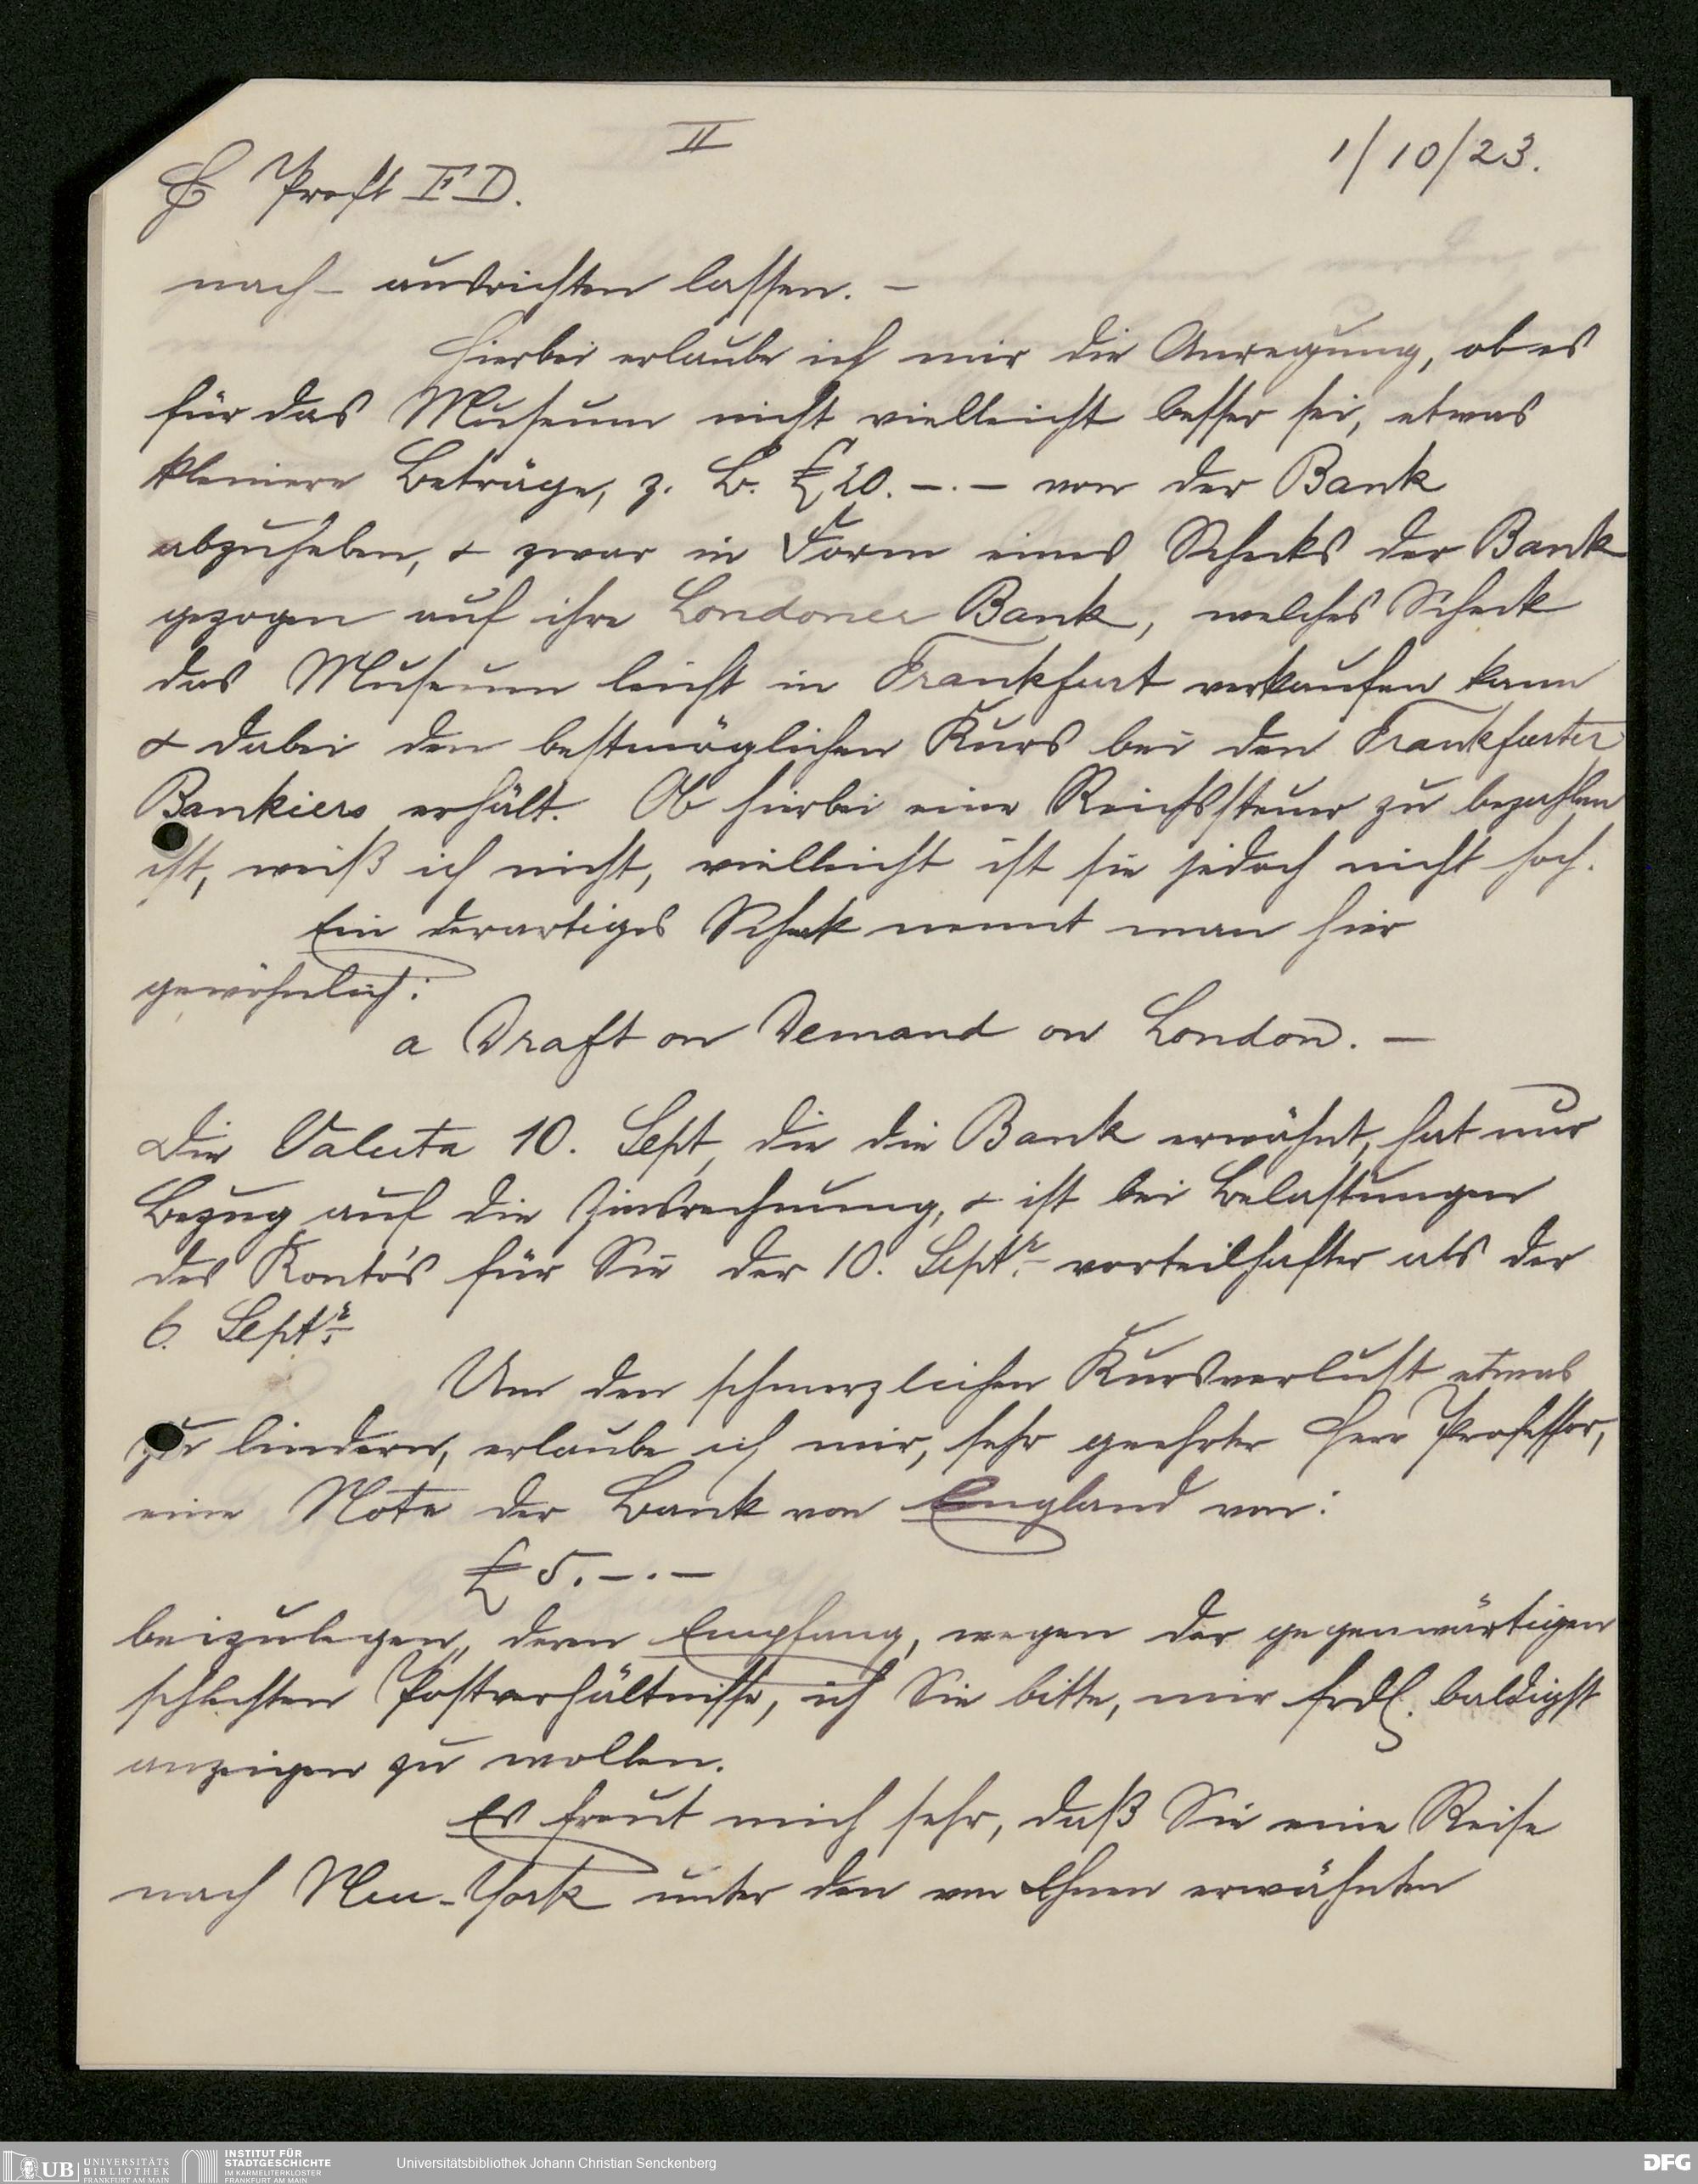 II
1/10/23.
Proft F D.
nach- ausrichten lassen. –
Hierbei erlaube ich mir die Anregung, ob es
für das Museum nicht vielleicht besser sei, etwas
kleinere Beträge, z. B. £ 20.–.– von der Bank
abzuheben, & zwar in Form eines Schecks der Bank
gezogen auf ihre Londoner Bank, welches Scheck
das Museum leicht in Frankfurt verkaufen kann
& dabei den bestmöglichen Kurs bei den Frankfurter
Bankiers erhält. Ob hierbei eine Reichssteuer zu bezahlen
ist, weiß ich nicht, vielleicht ist sie jedoch nicht hoch.
Ein derartiges Scheck nennt man hier
gewöhnlich:
a Draft on Demand on London. –
Die Valuta 10. Sept, die die Bank erwähnt, hat nur
Bezug auf die Zinsrechnung, & ist bei Belastungen
des Konto's für Sie der 10. Septr. vorteilhafter als der
6. Septr.
Um den schmerzlichen Kursverlust etwas
zu lindern, erlaube ich mir, sehr geehrter Herr Professor,
eine Note der Bank von England von:
£ 5.–.–
beizulegen, deren Empfang, wegen der gegenwärtigen
schlechten Postverhältnisse, ich Sie bitte, mir frdl. baldigst
anzeigen zu wollen.
Es freut mich sehr, daß Sie eine Reise
nach Neu-York unter den von Ihnen erwähnten
UB UNIVERSITÄTS
BIBLIOTHEK
FRANKFURT AM MAIN
INSTITUT FÜR
STADTGESCHICHTE
IM KARMELITERKLOSTER
FRANKFURT AM MAIN
Universitätsbibliothek Johann Christian Senckenberg
DFG